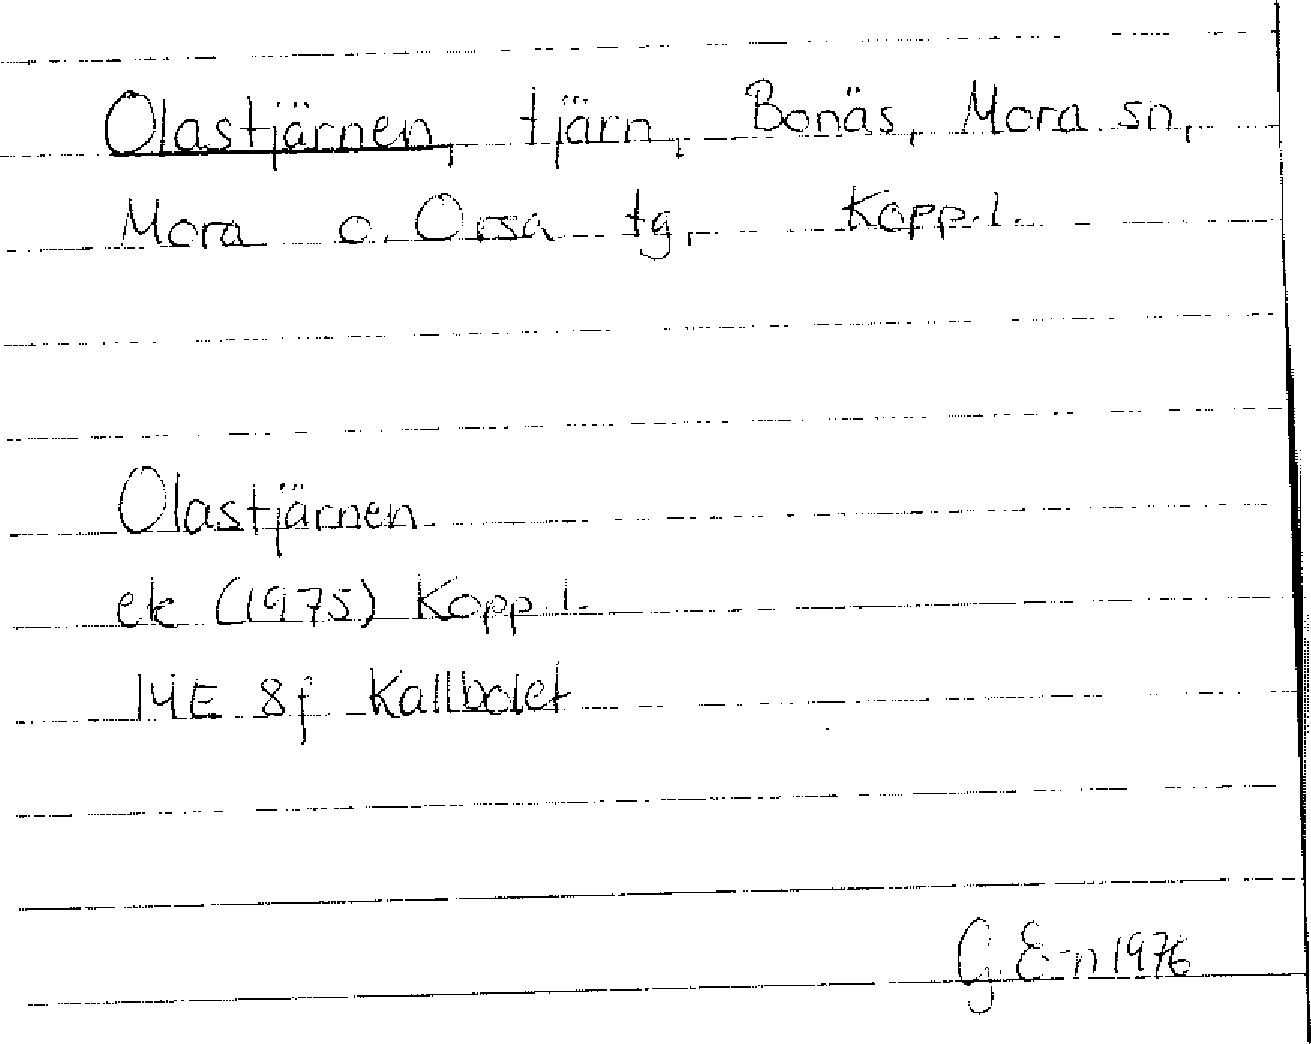 Olastjärnen, tjärn, Bonäs, Mora sn,
Mora o. Orsa tg, Kopp.l.
Olastjärnen
ek (1975) Kopp l.
14E 8f Kallbolet
G. E-n 1976